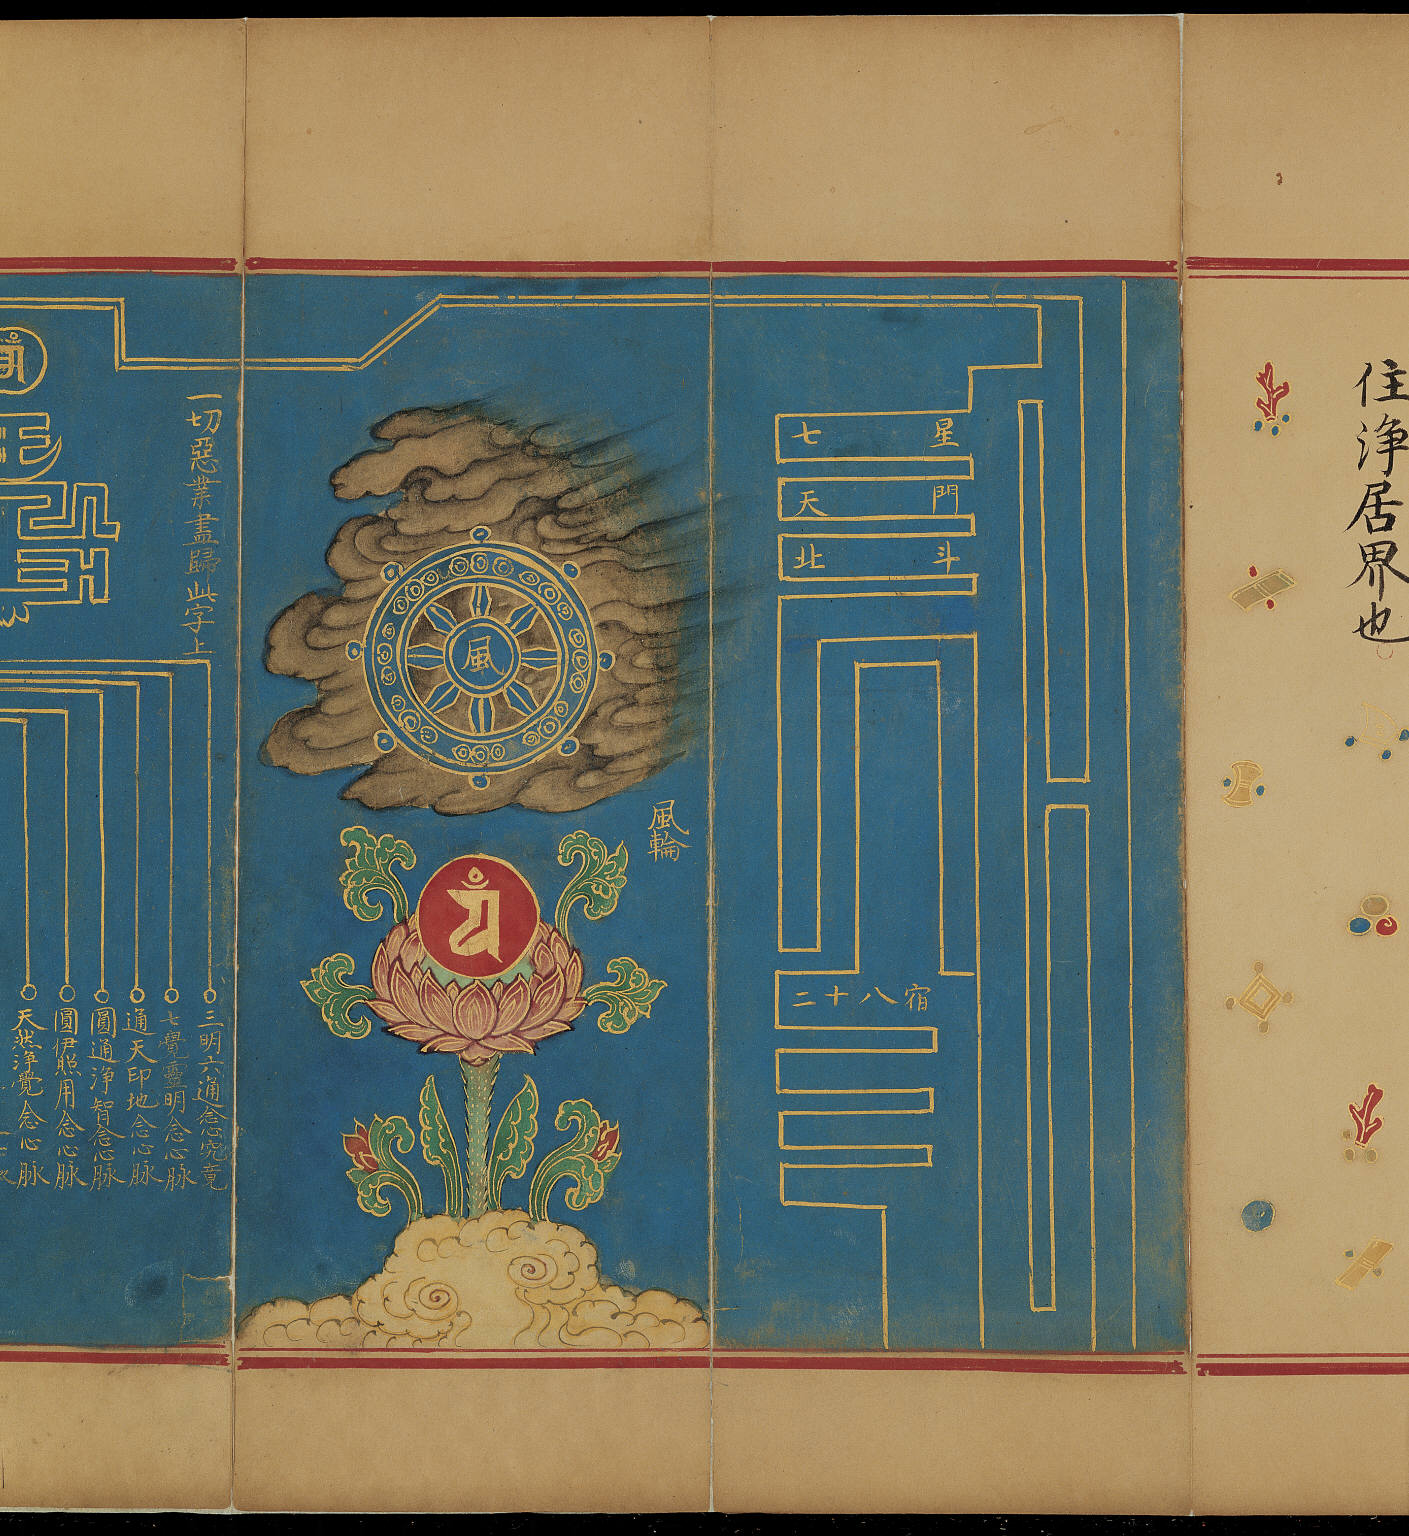 住淨居界也
七星
天門
北斗
二十八宿
風輪
風
一切惡業盡歸此字上
三明六通念究竟
七覺靈明念心脉
通天印地念心脉
圓通淨智念心脉
圓伊照用念心脉
天然淨覺念心脉